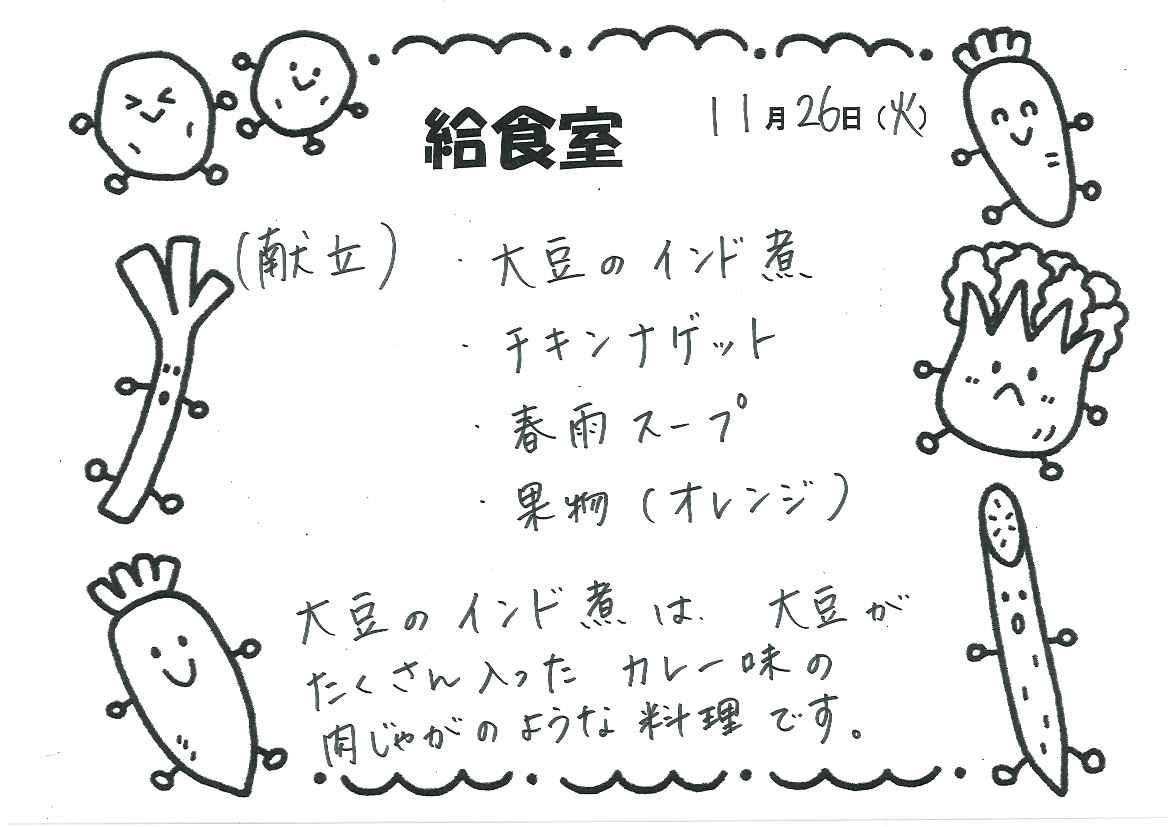 給食室
11月26日(火)
(献立)
・大豆のインド煮
・チキンナゲット
・春雨スープ
・果物(オレンジ)
大豆のインド煮は、大豆が
たくさん入ったカレー味の
肉じゃがのような料理です。